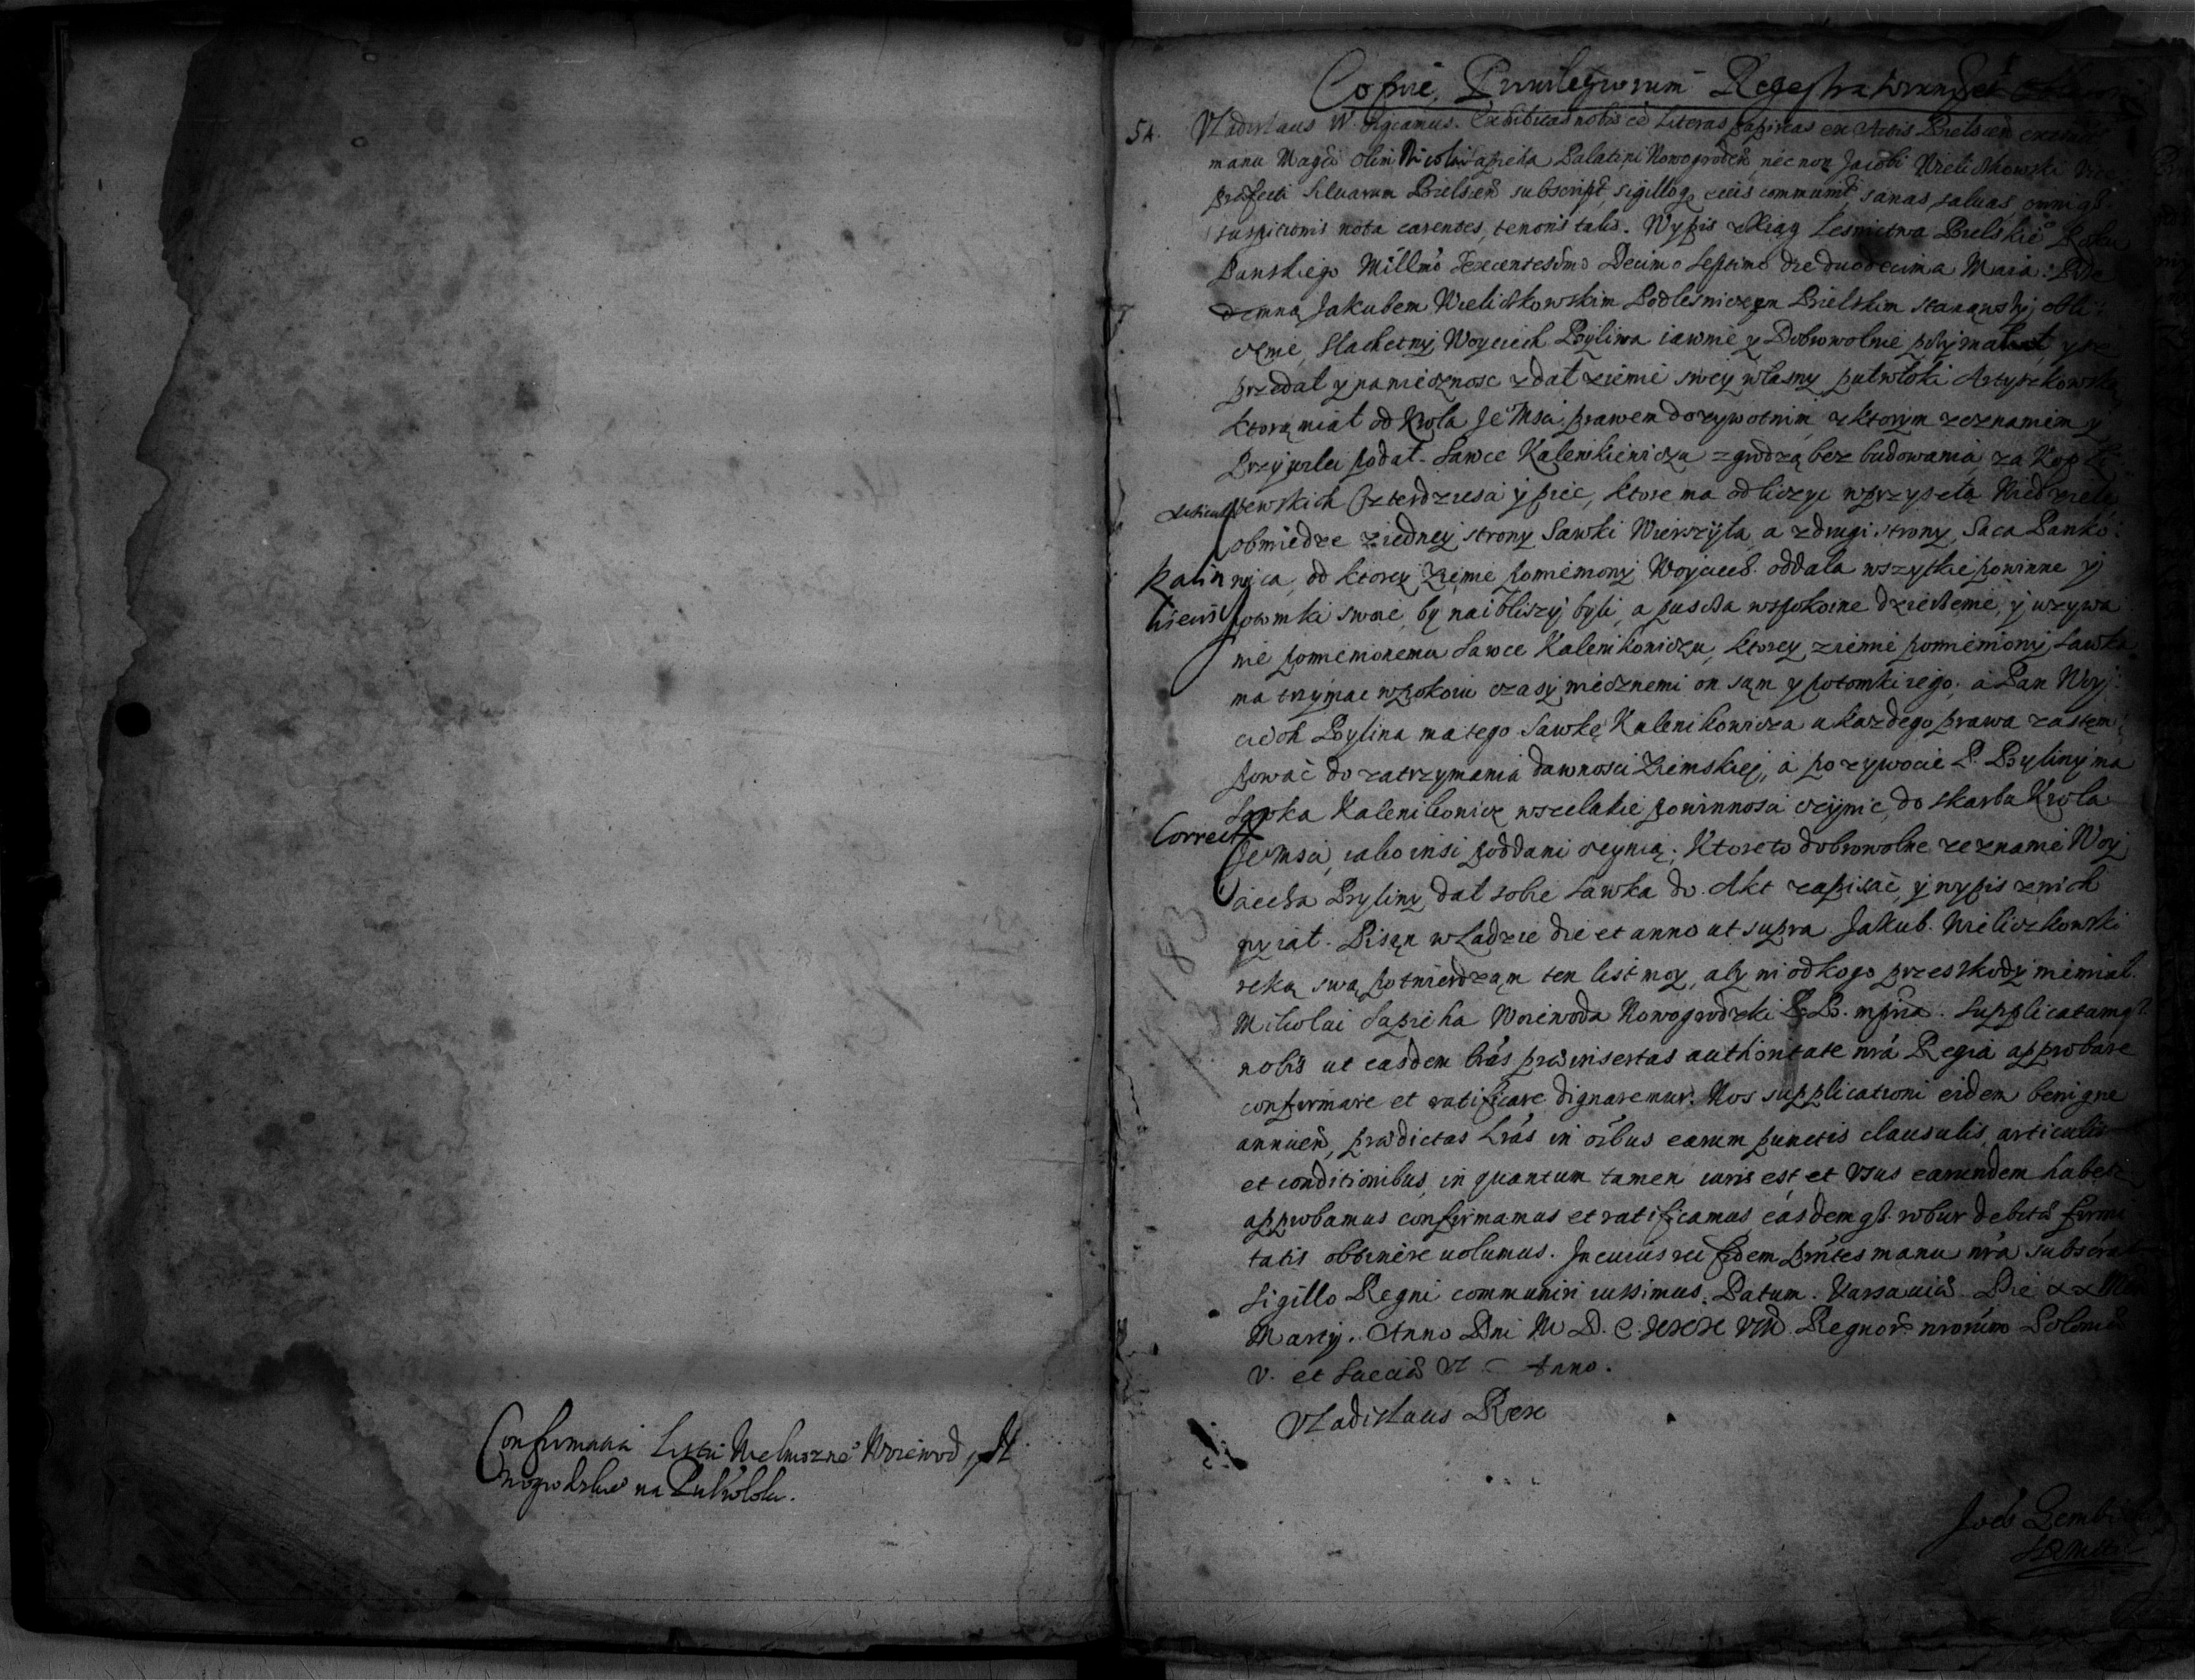 Confirmatia Listu Wielmoznego Woiewod
nogrodzkie na Pułwłoku.
Copiae Priuilegiorum
54. Vladislaus IV. Significamus. Exhibitas nobis eē Literas papireas ex Actis Bielsceñ
manu Magci olim Nicolai Sapieha Palatini Nowogrodeñ nec non Jacobi Wieliczkowski
præfecti siluarum Bielsceñ subscript, sigilloq eius communit, sanas, saluas, omniq3
suspicionis nota carentes, tenoris talis. Wypis z Xiąg Lesnictwa Bielskieo Roku
Panskiego Millmo Sexcentesimo Decimo Septimo die duodecima Maia. Prze
demną Jakubem Wieliczkowskim Podlesniczym Bielskim stanąwszy obli:
cznie, Slachetny Woyciech Bylina iawnie y Dobrowolnie
przedał y na wiecznosc zdał ziemie swey własny pułwłoki
ktorą miał od Krola Je Msci prawem dozywotnim z ktorym zeznaniem y
Przywilei podał. Sawce Kalenikiewiczu z grodzą bez budowania za Kop
Litewskich Czterdziesci y pięc, ktore ma odliczyc w przyszłą Niedziele
obmiedze z iedney strony Sawki Wierszyła, a z drugi strony Saca Panko:
Kalin wica, od ktorey Ziemie pomieniony Woyciech oddala wszytkie powinne y
potomki swoie, by naibliszy byli, a puscza w spokoine dzierzenie, y uzywa
nie pomienionemu Sawce Kalenikowiczu, ktorey ziemie pomieniony Sawka
ma trzymac w pokoiu czasy wiecznemi on sam y potomki iego, a Pan Woy:
ciech Bylina ma tego Sawkę Kalenikowicza u kazdego prawa zastem:
powac do zatrzymania dawnosci Ziemskiej, a po zywocie P. Byliny ma
Sawka Kalenikowicz wszelakie powinnosci czynic, do skarbu Krola
Correct Je Msci, iako insi poddani czynią. Ktore to dobrowolne zeznanie Woy
ciecha Byliny dał sobie Sawka do Akt zapisac, y wypis z nich
wział. Pisan w Ladzie die et anno ut supra Jakub Wieliczkowski
reką swą potwierdzam ten list moy, aby ni od kogo przeszkody niemial.
Mikolai Sapieha Woiewoda Nowogrodzki mpria. Supplicatumq3
nobis ut easdem lrás præinsertas authoritate nrá Regia approbare
confirmare et ratificare dignaremur. Nos supplicationi eidem benigne
annueñ, prædictas Lrás in oíbus earum punctis clausulis, articulis
et conditionibus, in quantum tamen iuris est, et vsus earundem habetr
approbamus confirmamus et ratificamus easdemq3 robur debitæ firmi
tatis obtinere uolumus. In cuius rei fidem prńtes manu nrá subscrat
Sigillo Regni communiri iussimus. Datum Varsauiæ. Die
Martij. Anno Dni M D C XXXVII Regnor nrorum Poloniæ
V. et Sueciæ VI Anno.
Vladislaus Rex